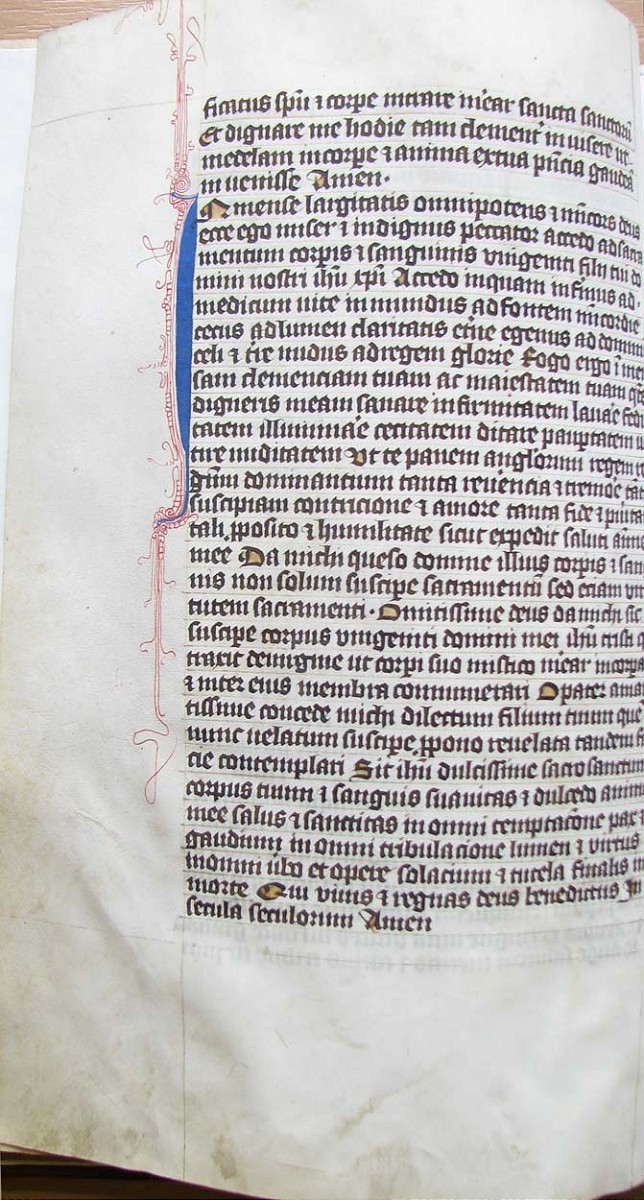 ficatus spũ ⁊ corpe intrare mẽar sancta sanctorũ
Et dignare me hodie tam clement᷑ in uisere ut
medelam in corpe ⁊ anima ex tua pñcia gaudeã
in uenisse Amen.
In mense largitatis omnipotens ⁊ mĩcors deus
ecce ego miser ⁊ indignus peccator accedo ad sacra
mentum corpis ⁊ sanguinis vnigeniti filij tui do
mini nostri ihũ xpĩ Accedo inquam infirmus ad
medicum uite in mundus ad fontem mĩcordie
cecus ad lumen claritatis et᷑ne egenus ad domin
celi ⁊ t᷑re nudus ad regem glorie Rogo ergo ĩmen
sam clemenciam tuam ac maiestatem tuam q̃t᷑
digneris meam sanare in firmitatem lauãe fedi
tatem illuminãe cecitatem ditare paup̱tatem u
tire nuditatem Vt te panem anglorum regem re
gum dominantium tanta reu᷑encia ⁊ tremõe tan
suscipiam contricione ⁊ amore tanta fide ⁊ purita
tali p̱posito ⁊ humilitate sicut expedit saluti anime
mee Da michi queso domine illius corpis ⁊ san
nis non solum suscipe sacramentũ sed eciam vir
tutem sacramenti. O mitissime deus da michi sic
suscipe corpus vnigeniti domini mei ihũ cristi q
traxit de uirgine ut corpi suo mistico mẽar incorpa
⁊ inter eius membra connumerari O pater aman
tissime concede michi dilectum filium tuum quẽ
nunc uelatum suscipe p̱pono reuelata tandem fa
cie contemplari Sit ihũ dulcissime sacrosanctum
corpus tuum ⁊ sanguis suauitas ⁊ dulcedo anime
mee salus ⁊ sanctitas in omni temptacõne pax ⁊
gaudium in omni tribulacione lumen ⁊ virtus
in omni ũbo et opere solacium ⁊ tutela finalis in
morte Qui viuis ⁊ regnas deus benedictus In
secula seculorum Amen